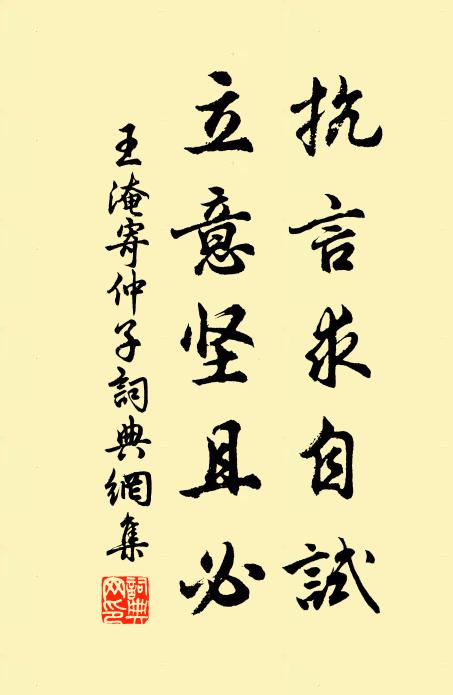 抗言求自試
立意坚且必
王淹寄仲子詞典網集
詞典網印